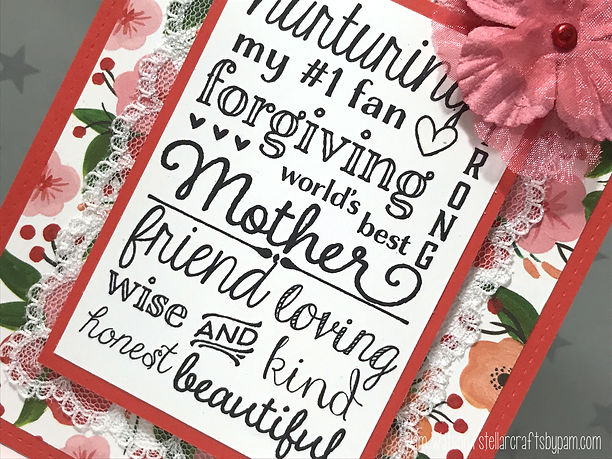 nurturing
my #1 fan
forgiving
STRONG
world's best
Mother
friend loving
wise AND kind
honest
beautiful
stellarcraftsbypam.com